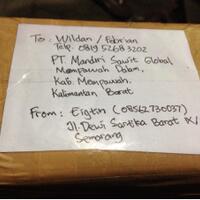 To: Wildan / Febrian
Telp. 0819 5268 3202
PT. Mandiri Sawit Global
Mempawah Dalam,
Kab. Mempawah,
Kalimantan Barat
From: Eigtin (08562730037)
Jl. Dewi Sartika Barat IX/
Semarang